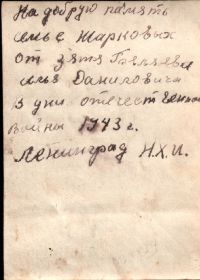 На добрую память
семье Жарновых
от зятя
Ильи Даниловича
в дни отечественной
войны 1943 г.
Ленинград Н.Х.И.